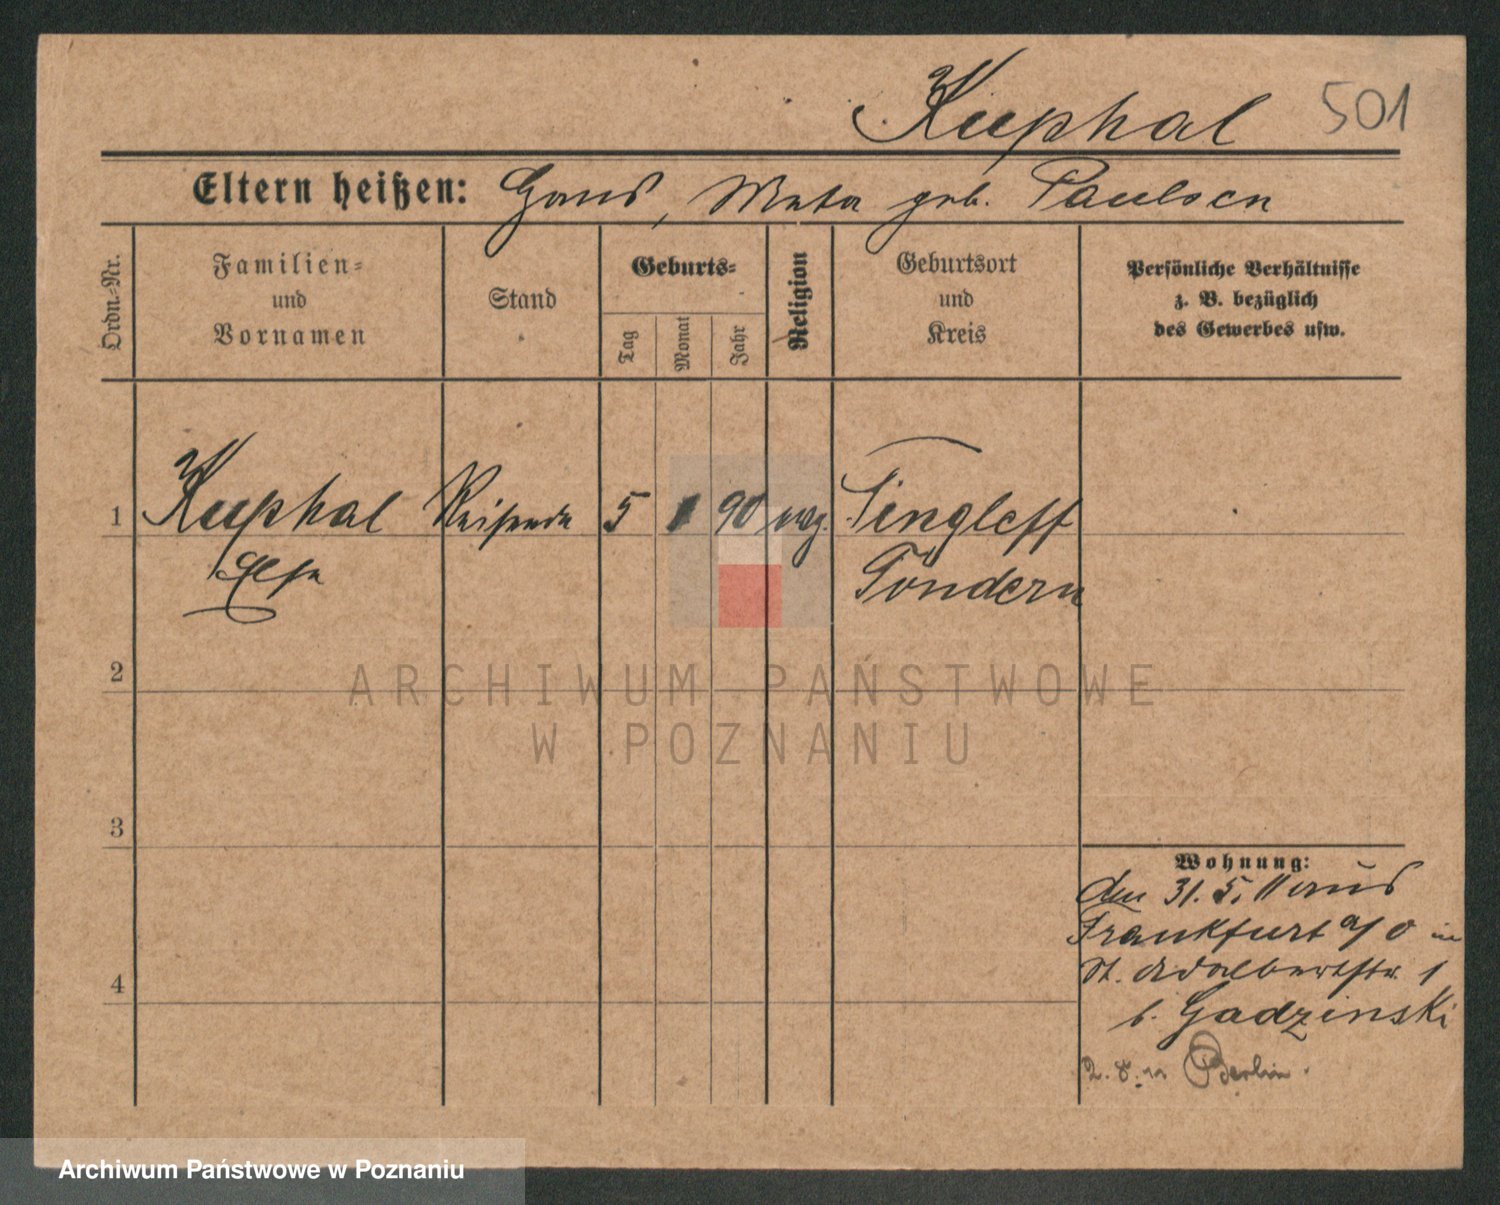 Kuphal 501
Eltern heißen: Hans, Meta geb. Paulsen
Ordn.-Nr.
Familien-
und
Vornamen
Stand
Geburts-
Tag
Monat
Jahr
Religion
Geburtsort
und
Kreis
Persönliche Verhältnisse
z. B. bezüglich
des Gewerbes usw.
1 Kuphal Reisende 5 90 evg. Tingleff
Else Tondern
2
ARCHIWUM PAŃSTWOWE
W POZNANIU
3
Wohnung:
den 31. 5. 11 aus
Frankfurt a/O in
St. Adalbertstr. 1
4
b. Gadzinski
2. 8. Berlin.
Archiwum Państwowe w Poznaniu